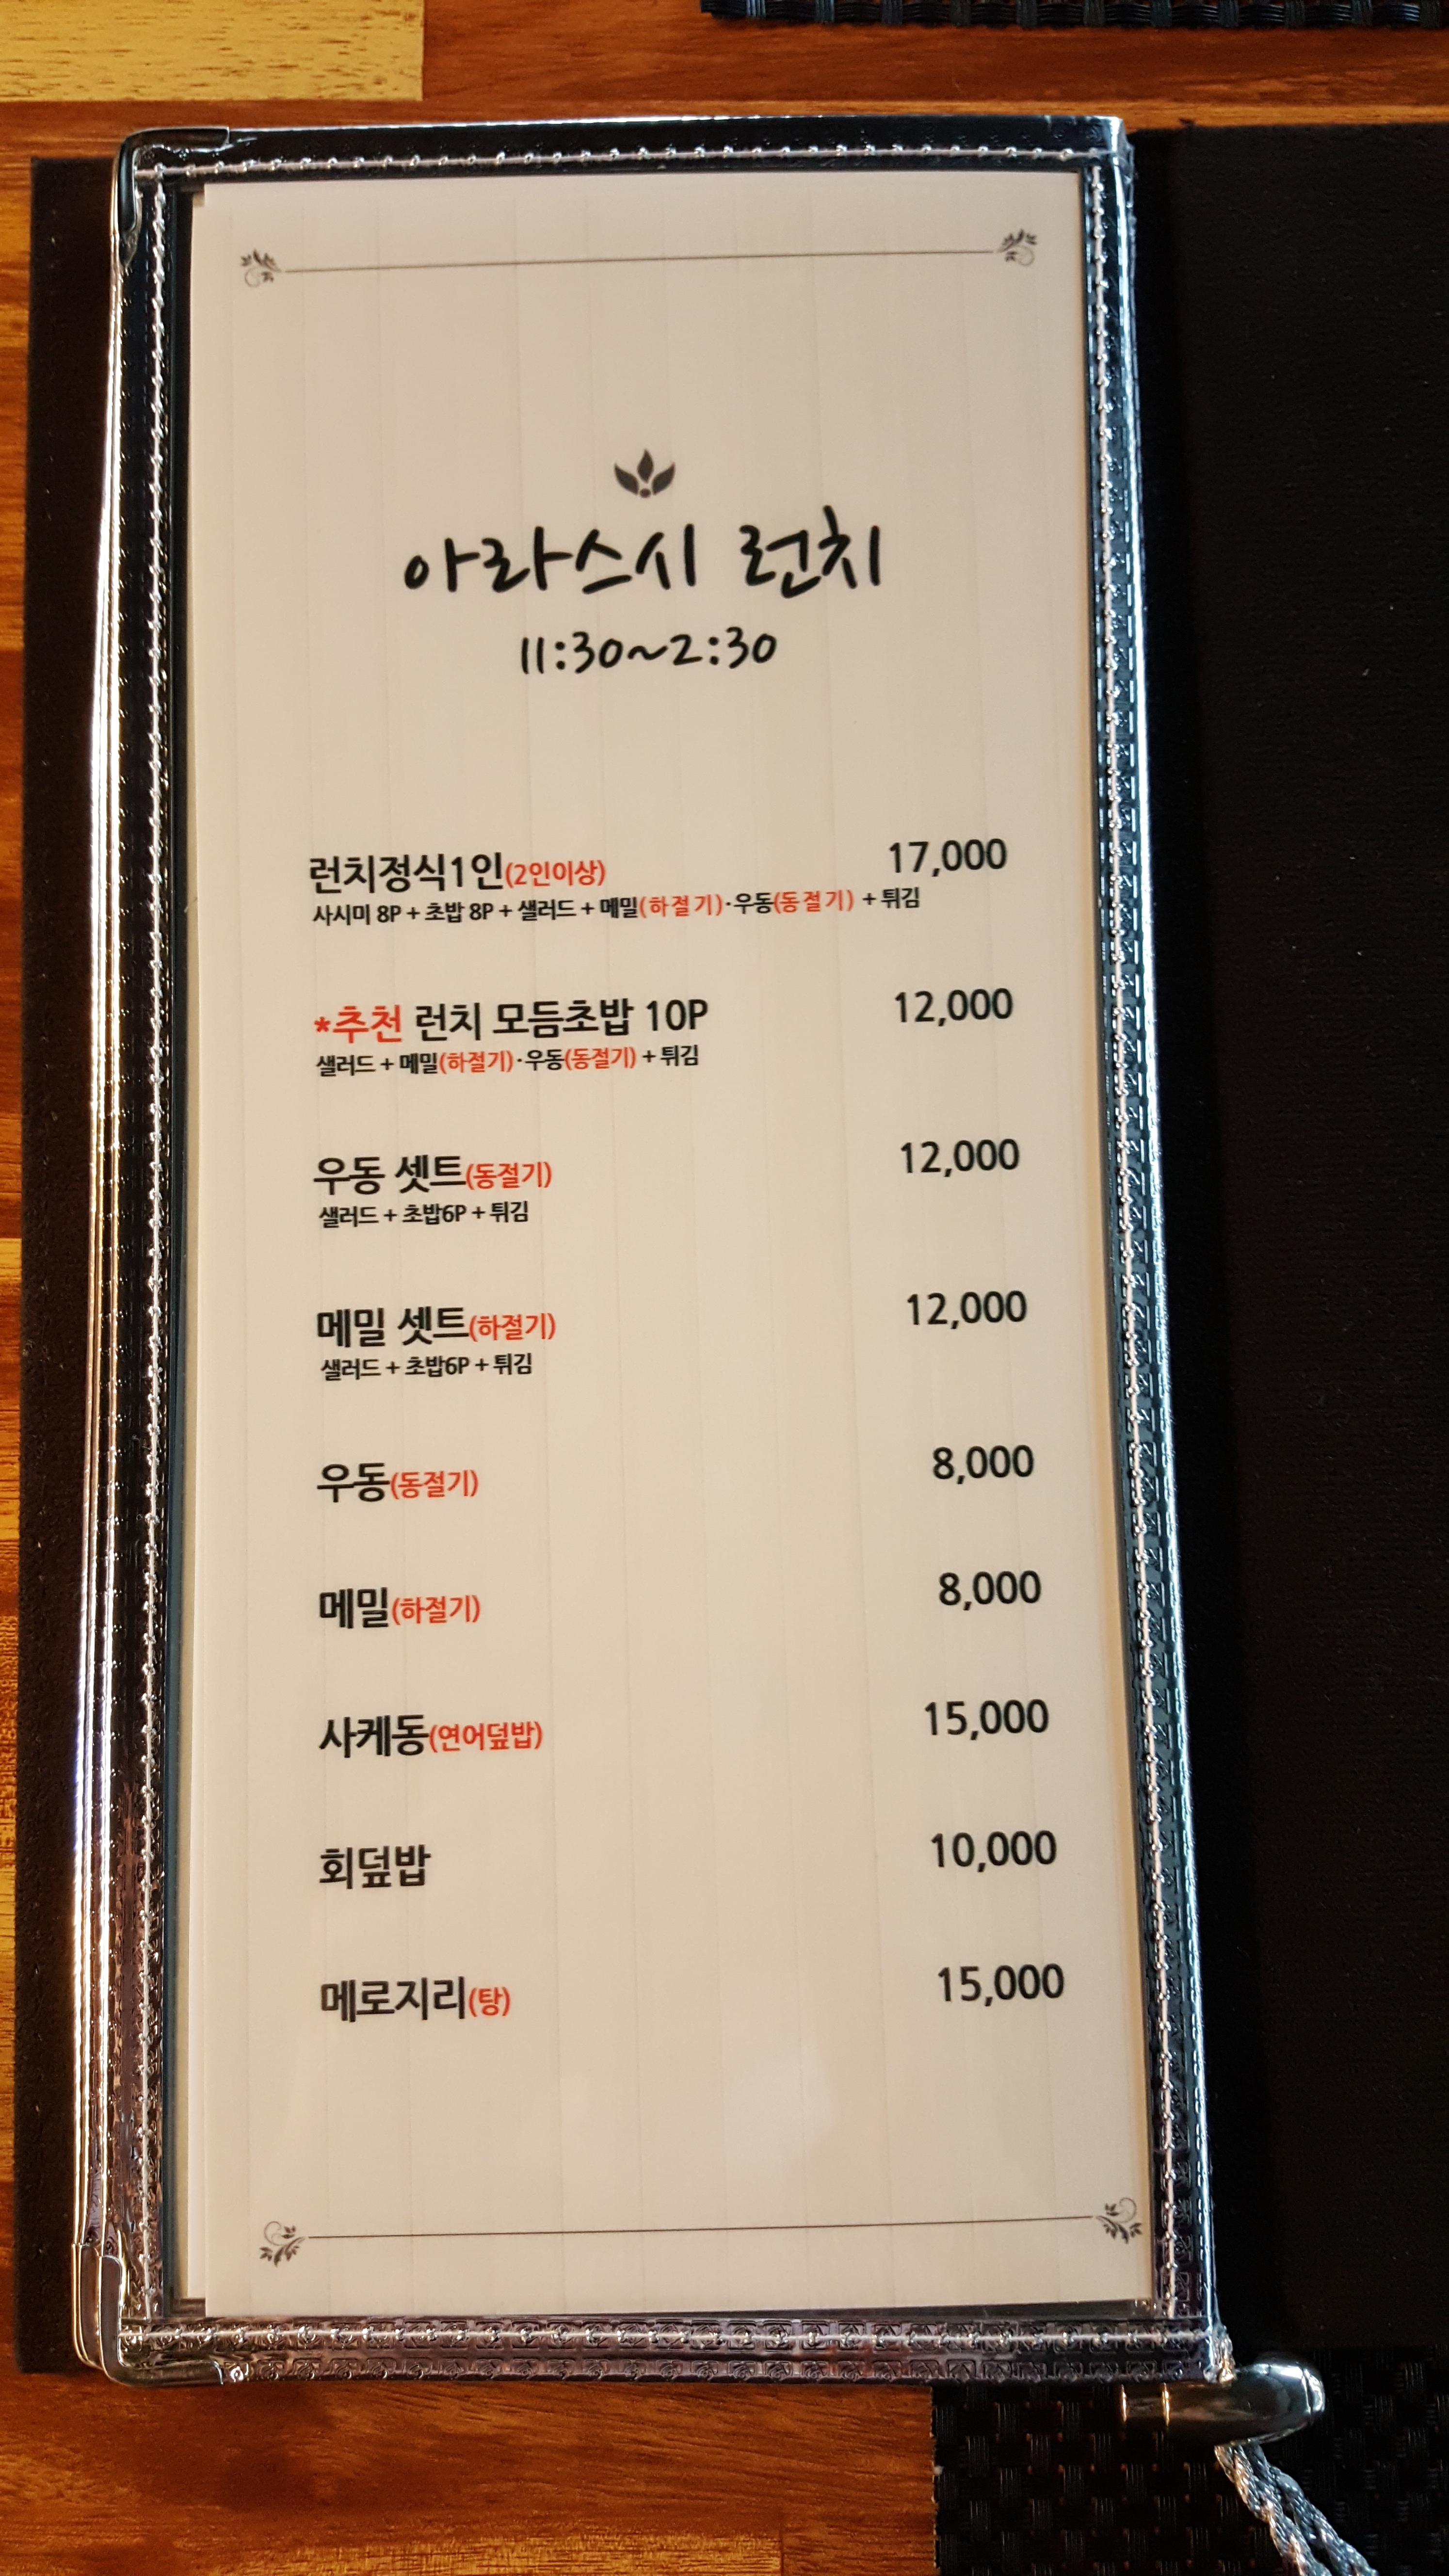 아라스시 런치
11:30~2:30
런치정식1인(2인이상) 17,000
사시미 8P + 초밥 8P + 샐러드 + 메밀(하절기)·우동(동절기) + 튀김
*추천 런치 모듬초밥 10P 12,000
샐러드 + 메밀(하절기)·우동(동절기) + 튀김
우동 셋트(동절기) 12,000
샐러드 + 초밥6P + 튀김
메밀 셋트(하절기) 12,000
샐러드 + 초밥6P + 튀김
우동(동절기) 8,000
메밀(하절기) 8,000
사케동(연어덮밥) 15,000
회덮밥 10,000
메로지리(탕) 15,000